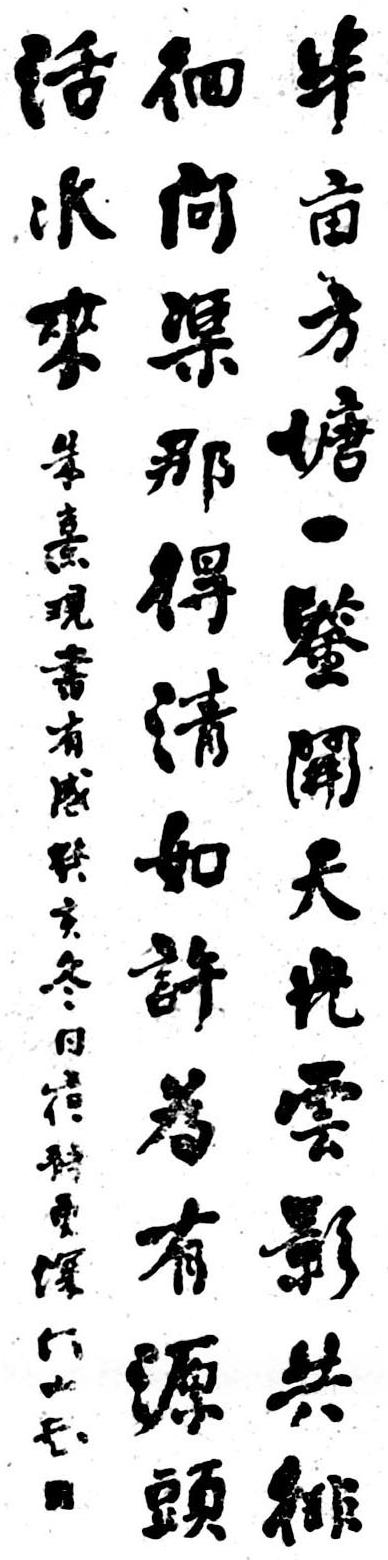 半亩方塘一鑒開天光雲影共徘
徊问渠那得清如許為有源頭
活水來
朱熹观書有感癸亥冬日